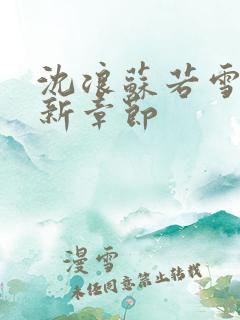 沈浪蘇若雪
新章節
漫雪
未經同意禁止轉載